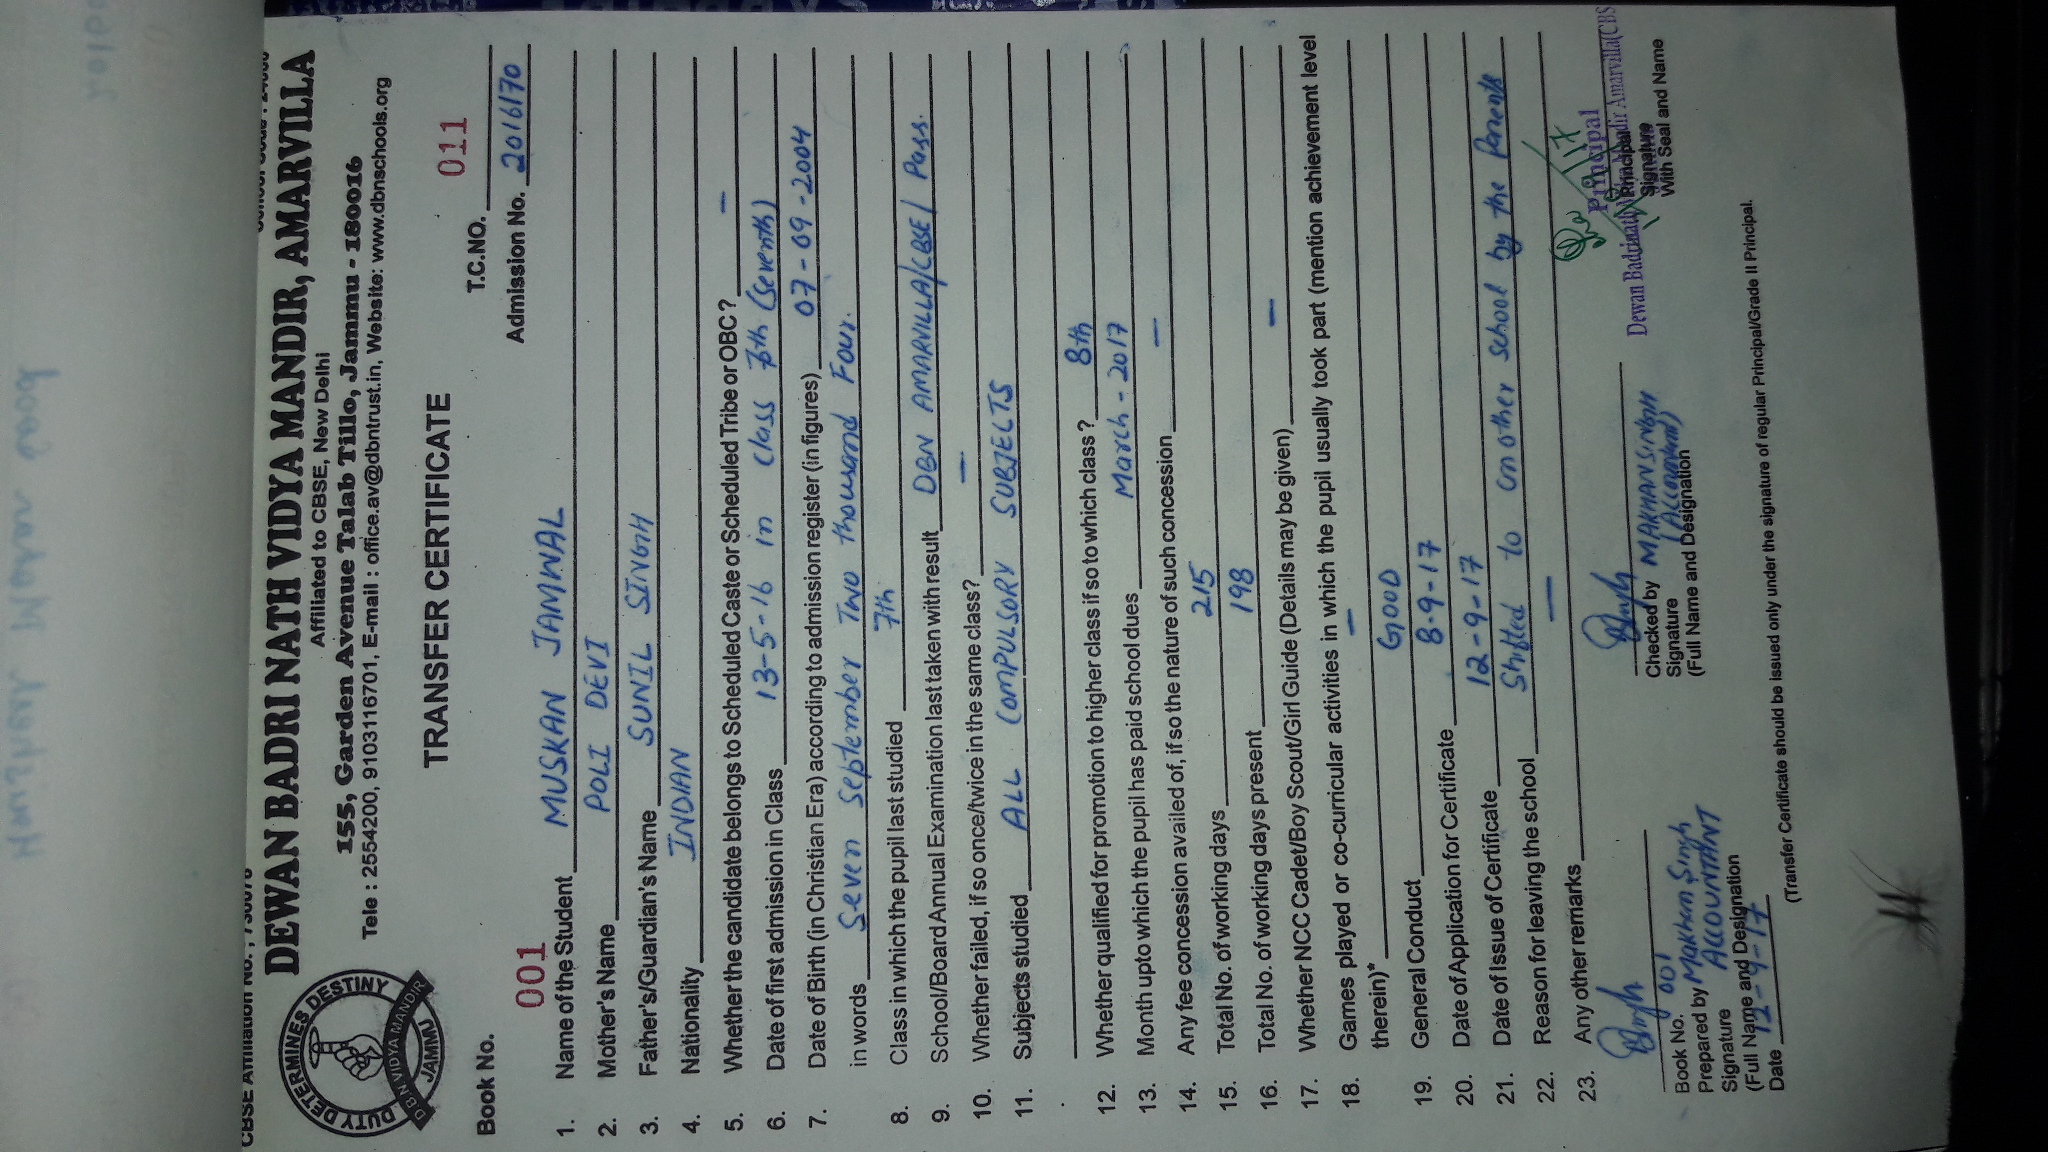 DEWAN BADRI NATH VIDYA MANDIR, AMARVILLA
Affiliated to CBSE, New Delhi
155, Garden Avenue Talab Tillo, Jammu - 180016
Tele : 2554200, 9103116701, E-mail : office.av@dbntrust.in, Website: www.dbnschools.org
DUTY DETERMINES DESTINY
DBN VIDYA MANDIR
JAMMU
TRANSFER CERTIFICATE
011
Book No. T.C.NO.
001 Admission No. 2016170
1. Name of the Student MUSKAN JAMWAL
2. Mother's Name POLI DEVI
3. Father's/Guardian's Name SUNIL SINGH
4. Nationality INDIAN
5. Whether the candidate belongs to Scheduled Caste or Scheduled Tribe or OBC? —
6. Date of first admission in Class 13-5-16 in class 7th (Seventh)
7. Date of Birth (in Christian Era) according to admission register (in figures) 07-09-2004
in words Seven September Two thousand Four.
8. Class in which the pupil last studied 7th
9. School/Board Annual Examination last taken with result DBN AMARVILLA/CBSE/ Pass.
10. Whether failed, if so once/twice in the same class? —
11. Subjects studied ALL COMPULSORY SUBJECTS
12. Whether qualified for promotion to higher class if so to which class? 8th
13. Month upto which the pupil has paid school dues March - 2017
14. Any fee concession availed of, if so the nature of such concession —
15. Total No. of working days 215
16. Total No. of working days present 198
17. Whether NCC Cadet/Boy Scout/Girl Guide (Details may be given) —
18. Games played or co-curricular activities in which the pupil usually took part (mention achievement level
therein)* —
19. General Conduct GOOD
20. Date of Application for Certificate 8-9-17
21. Date of Issue of Certificate 12-9-17
22. Reason for leaving the school Shifted to another school by the Parents
23. Any other remarks —
Book No. 001
Prepared by Makhan Singh
Signature ACCOUNTANT
(Full Name and Designation
Date 12-9-17
Checked by MAKHAN SINGH
Signature (Accountant)
(Full Name and Designation
Principal
Dewan Badrinath Vidya Mandir Amarvilla(CBS
Principal
Signature
With Seal and Name
(Transfer Certificate should be issued only under the signature of regular Principal/Grade II Principal.